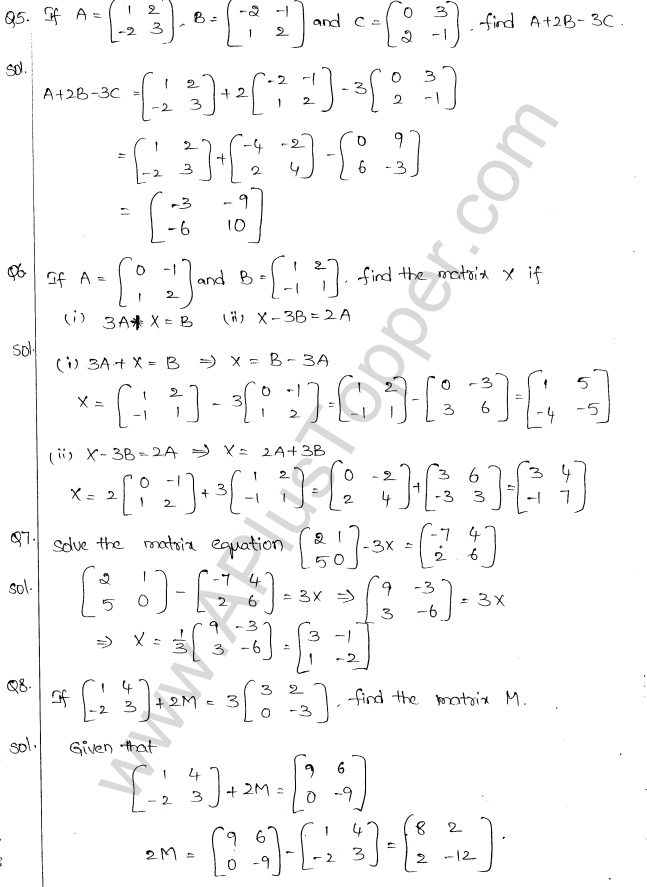 Q5. If A = [1 2; -2 3], B = [-2 -1; 1 2] and C = [0 3; 2 -1], find A+2B-3C.
Sol.
A+2B-3C = [1 2; -2 3] + 2[-2 -1; 1 2] - 3[0 3; 2 -1]
= [1 2; -2 3] + [-4 -2; 2 4] - [0 9; 6 -3]
= [-3 -9; -6 10]
Q6 If A = [0 -1; 1 2] and B = [1 2; -1 1], find the matrix X if
(i) 3A+ X = B (ii) X-3B = 2A
Sol.
(i) 3A+ X = B ⇒ X = B - 3A
X = [1 2; -1 1] - 3[0 -1; 1 2] = [1 2; -1 1] - [0 -3; 3 6] = [1 5; -4 -5]
(ii) X-3B = 2A ⇒ X = 2A+3B
X = 2[0 -1; 1 2] + 3[1 2; -1 1] = [0 -2; 2 4] + [3 6; -3 3] = [3 4; -1 7]
Q7. Solve the matrix equation [2 1; 5 0] - 3X = [-7 4; 2 6]
Sol.
[2 1; 5 0] - [-7 4; 2 6] = 3X ⇒ [9 -3; 3 -6] = 3X
⇒ X = 1/3 [9 -3; 3 -6] = [3 -1; 1 -2]
Q8. If [1 4; -2 3] + 2M = 3[3 2; 0 -3], find the matrix M.
Sol. Given that
[1 4; -2 3] + 2M = [9 6; 0 -9]
2M = [9 6; 0 -9] - [1 4; -2 3] = [8 2; 2 -12].
www.APlusTopper.com